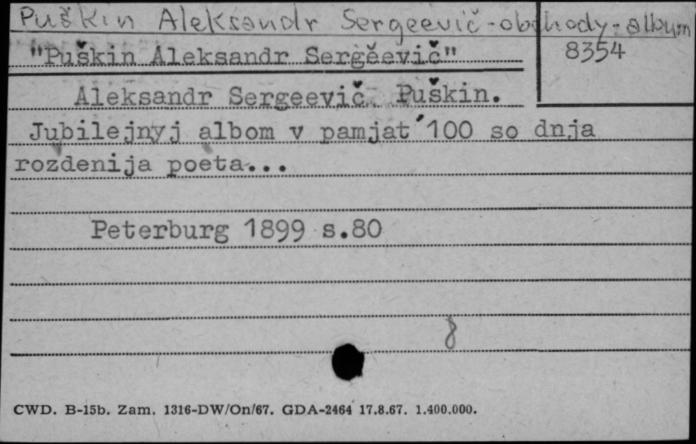 Puškin Aleksandr Sergeevič - obchody - album
"Puškin Aleksandr Sergěevič"
8354
Aleksandr Sergeevič Puškin.
Jubilejnyj albom v pamjat'100 so dnja
rozdenija poeta...
Peterburg 1899 s.80
8
CWD. B-15b. Zam. 1316-DW/On/67. GDA-2464 17.8.67. 1.400.000.